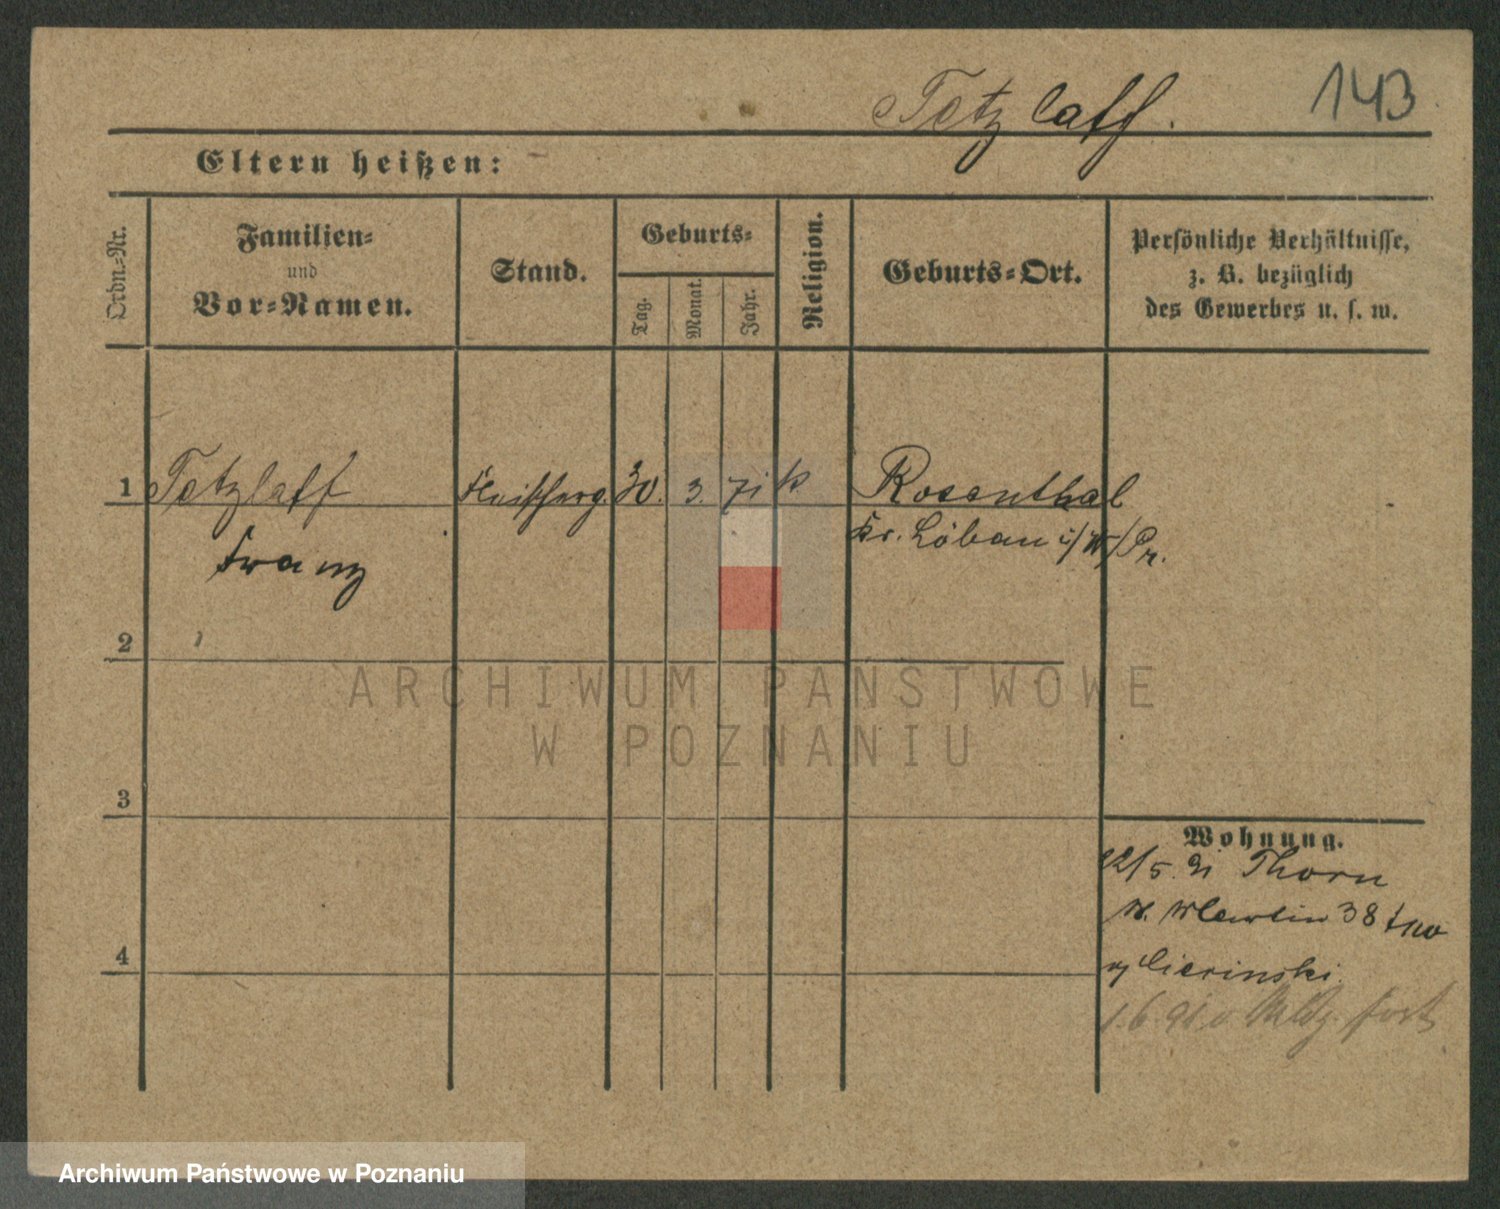 Tetzlaff.
143
Eltern heißen:
Ordn.-Nr.
Familien-
und
Vor-Namen.
Stand.
Geburts-
Tag.
Monat.
Jahr.
Religion.
Geburts-Ort.
Persönliche Verhältnisse,
z. B. bezüglich
des Gewerbes u. s. w.
1 Tetzlaff Fleischerg. 30. 3. 71 k Rosenthal
Franz Kr. Löbau i/W/Pr.
2
3
4
Wohnung.
22/5. 91 Thorn
W. 38
Cierinski.
1.6.91 fort
ARCHIWUM PAŃSTWOWE
W POZNANIU
Archiwum Państwowe w Poznaniu